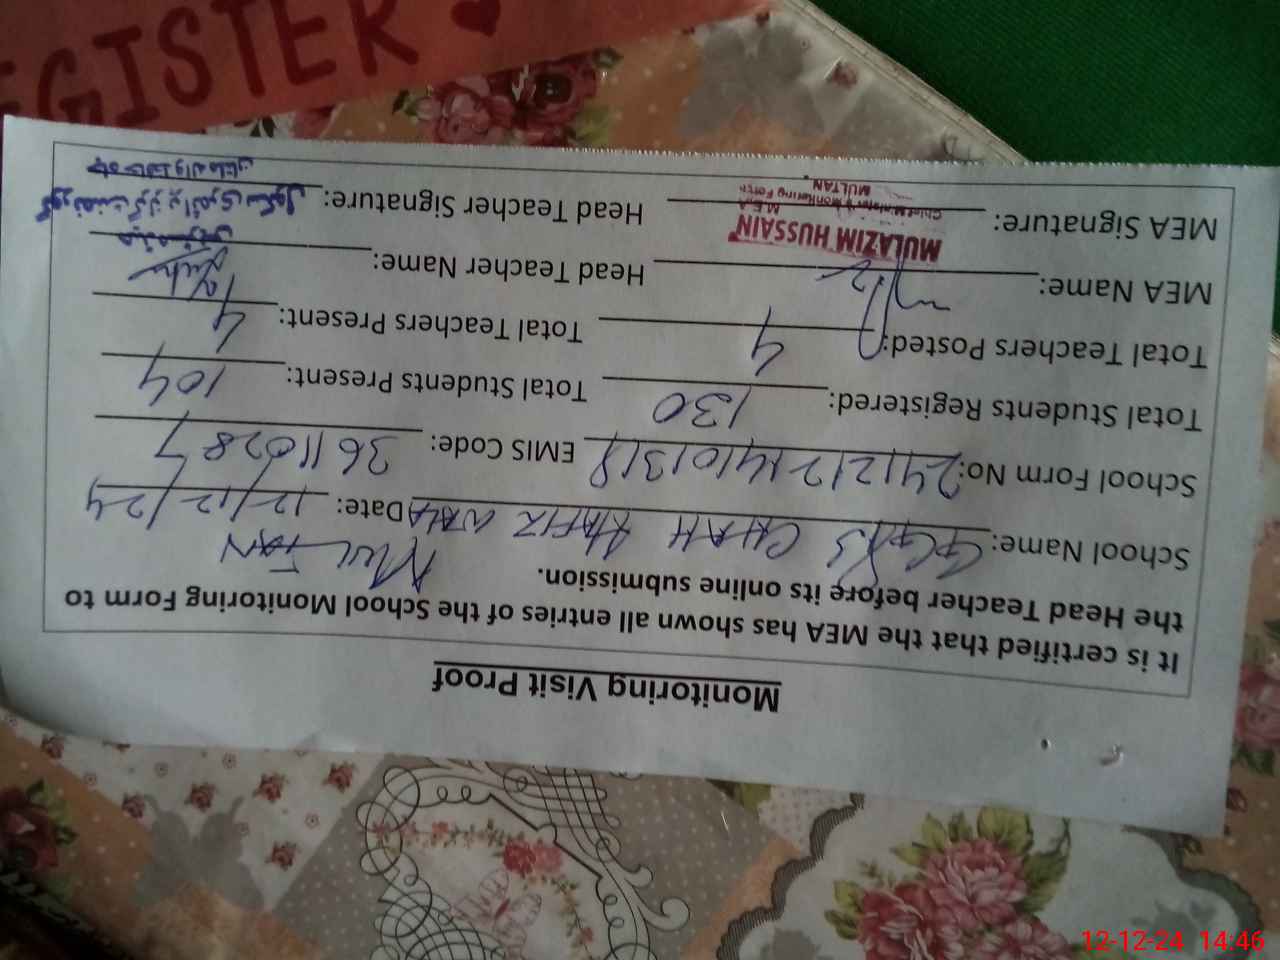 REGISTER
Monitoring Visit Proof
It is certified that the MEA has shown all entries of the School Monitoring Form to
the Head Teacher before its online submission.
MULTAN
School Name: GGPS CHAH HAFIZ WALA Date: 12/12/24
School Form No: EMIS Code: 36110287
Total Students Registered: 130 Total Students Present: 104
Total Teachers Posted: 4 Total Teachers Present: 4
MEA Name: Head Teacher Name:
MULAZIM HUSSAIN
M.E.A
Chief Minister's Monitoring Force
MULTAN
MEA Signature: Head Teacher Signature:
گورنمنٹ گرلز پرائمری سکول
چاہ حافظ والا ملتان
12-12-24 14:46